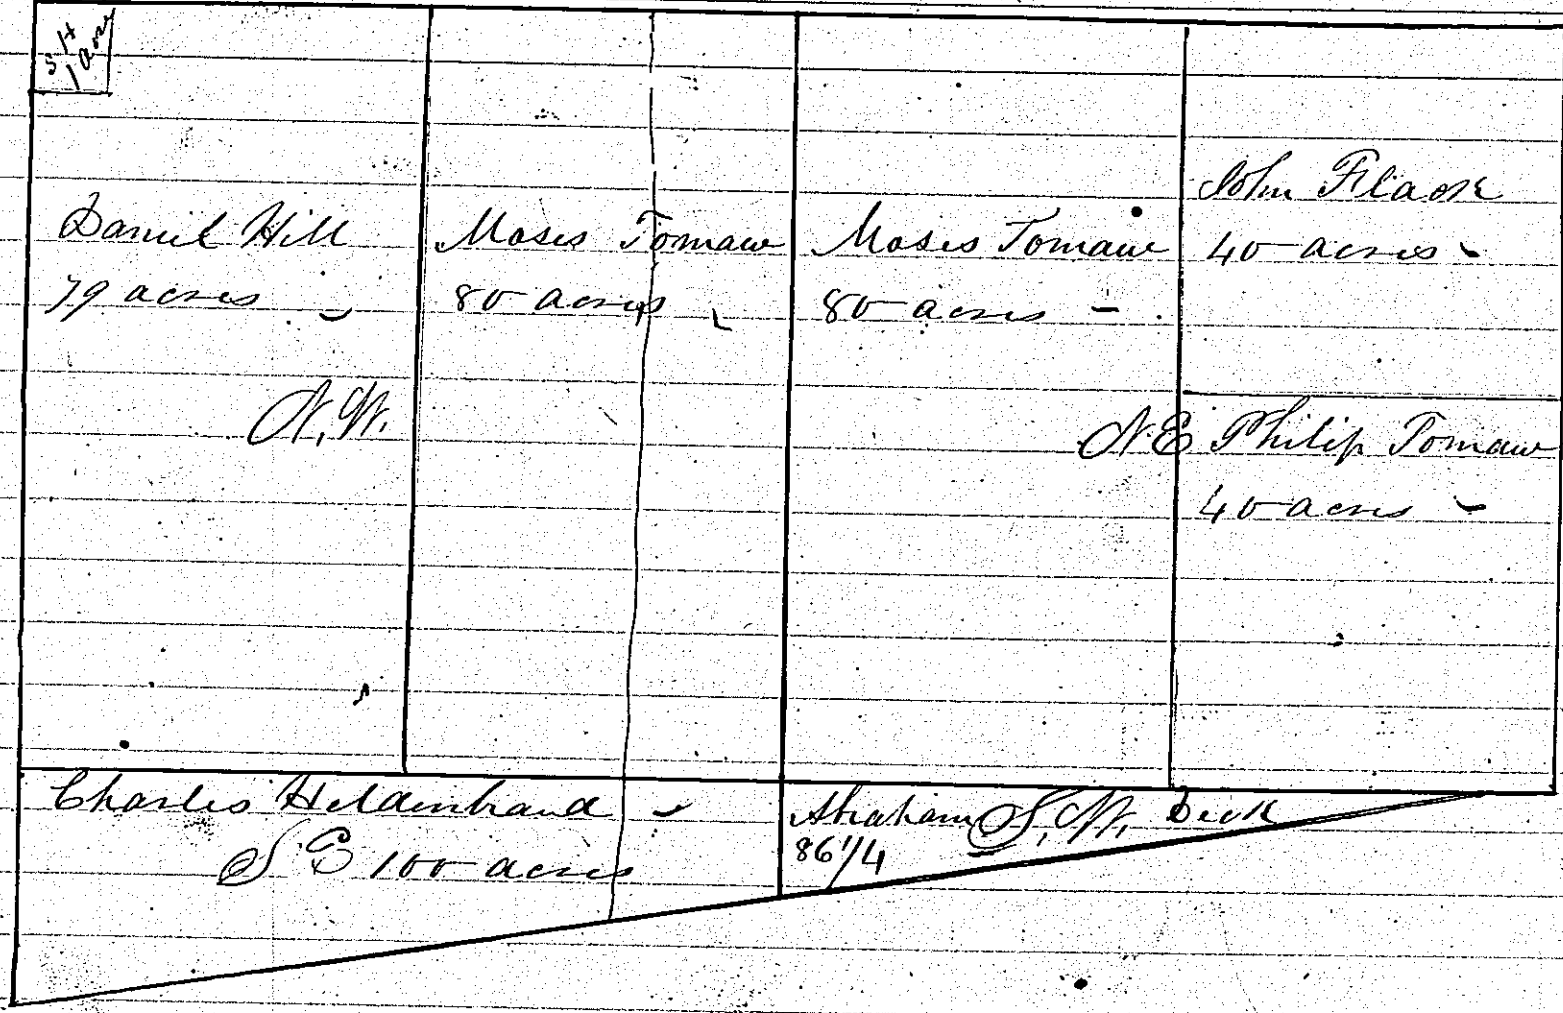 S.H
1 acre
Daniel Hill
79 acres
N.W.
Moses Tomaw
80 acres
Moses Tomaw
80 acres
John Flack
40 acres
N.E
Philip Tomaw
40 acres
Charles Heldenbrand
100 acres
Abraham Beck
S.W.
86 1/4